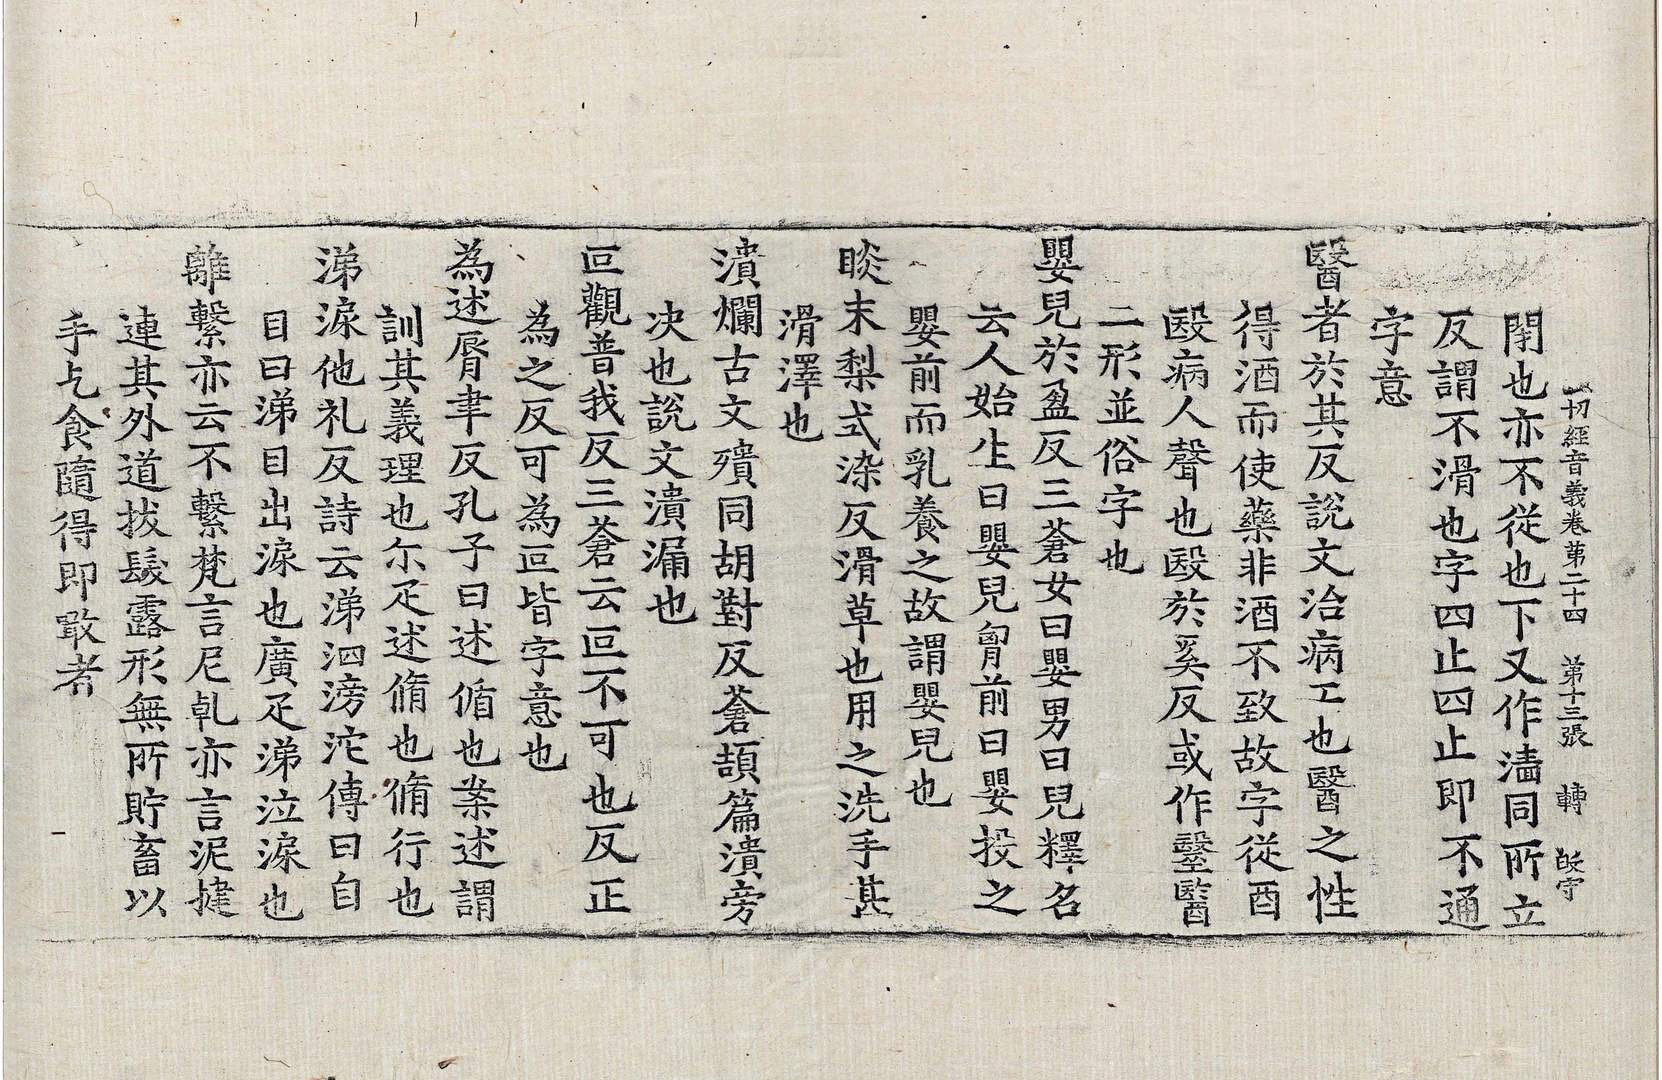 一切經音義卷苐二十四　苐十三張　轉　𢻻守
閇也亦不從也下又作濇同所立
反謂不滑也字四止四止即不通
字意
醫者於其反說文治病工也醫之性
得酒而使藥非酒不致故字從酉
殹病人聲也殹於奚反或作毉醫
二形並俗字也
嬰兒於盈反三蒼女曰嬰男曰兒釋名
云人始生曰嬰兒𦚾前曰嬰投之
嬰前而乳養之故謂嬰兒也
睒末梨式染反滑草也用之洗手甚
滑澤也
潰爛古文殨同胡對反蒼頡篇潰旁
決也說文潰漏也
叵觀普我反三蒼云叵不可也反正
為之反可為叵皆字意也
為述脣聿反孔子曰述循也案述謂
訓其義理也尓疋述脩也脩行也
涕淚他礼反詩云涕泗滂沱傳曰自
目曰涕目出淚也廣疋涕泣淚也
離繫亦云不繫梵言尼乹亦言泥揵
連其外道拔髮露形無所貯畜以
手乞食隨得即噉者